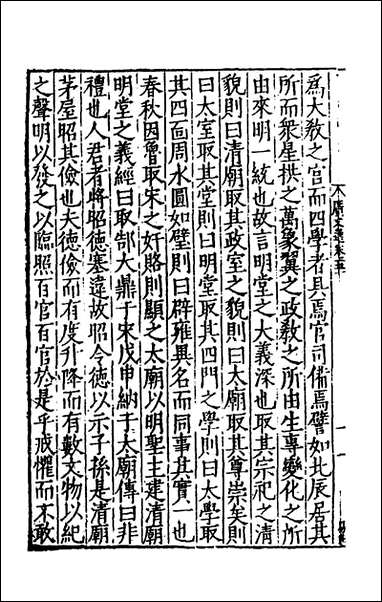 爲大教之宫而四學者具焉官司備焉譬如北辰居其
所而衆星拱之萬象翼之政教之所由生專變化之所
由來明一統也故言明堂之大義深也取其宗祀之清
貌則曰清廟取其政室之貌則曰太廟取其尊崇矣則
曰太室取其堂則曰明堂取其四門之學則曰太學取
其四面周水圜如壁則曰辟雍異名而同事其實一也
春秋因魯取宋之奸賂則顯之太廟以明聖王建清廟
明堂之義經曰取郜大鼎于宋戊申納于太廟傳曰非
禮也人君者將昭德塞違故昭令德以示子孫是清廟
茅屋昭其儉也夫德儉而有度升降而有數文物以紀
之聲明以發之以臨照百官百官於是乎戒懼而不敢